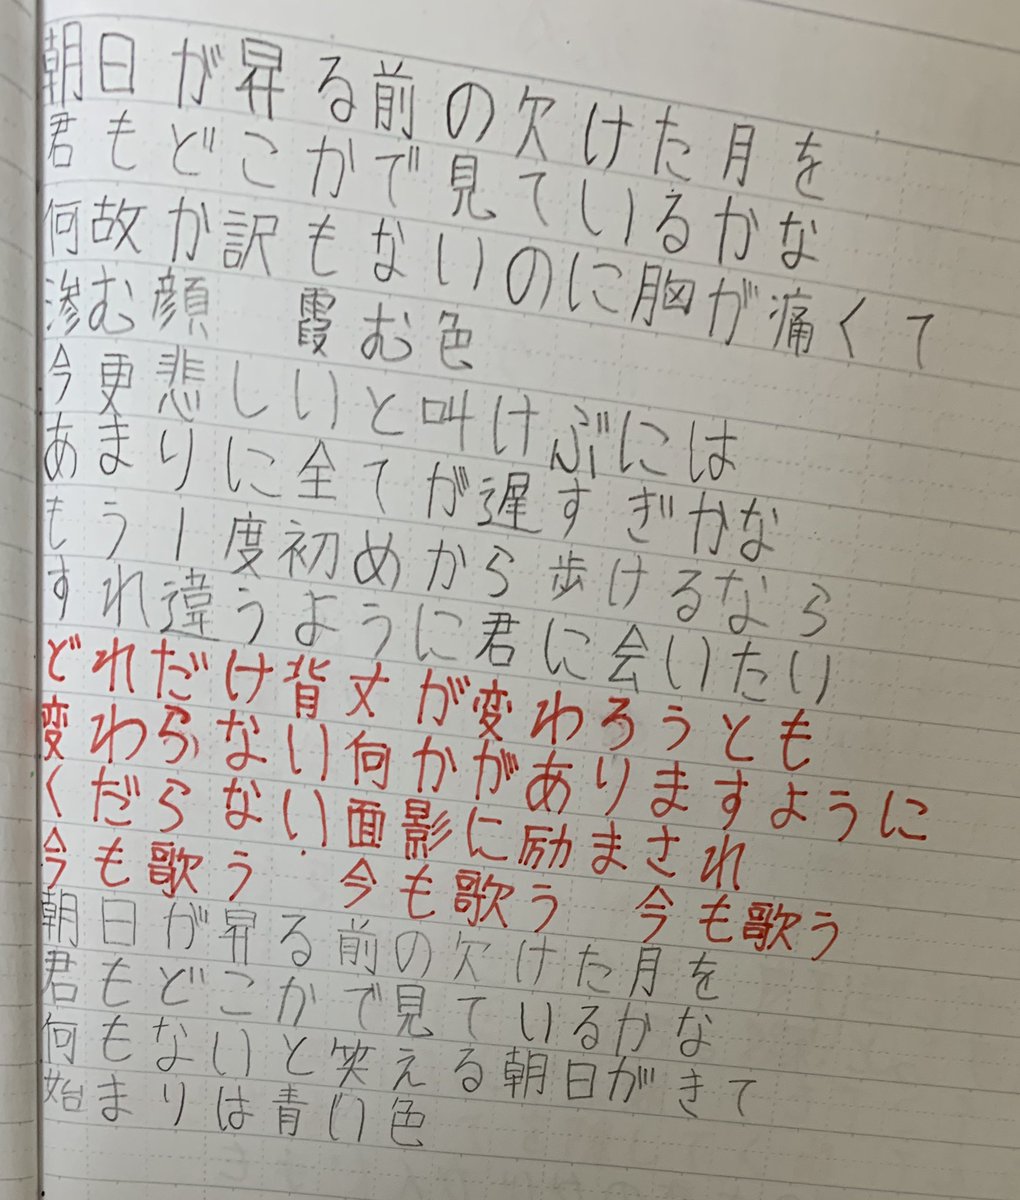 朝日が昇る前の欠けた月を
君もどこかで見ているかな
何故か訳もないのに胸が痛くて
滲む顔　霞む色
今更悲しいと叫けぶには
あまりに全てが遅すぎかな
もう1度初めから歩けるなら
すれ違うように君に会いたい
どれだけ背丈が変わろうとも
変わらない何かがありますように
くだらない面影に励まされ
今も歌う　今も歌う　今も歌う
朝日が昇る前の欠けた月を
君もどこかで見ているかな
何もないと笑える朝日がきて
始まりは青い色